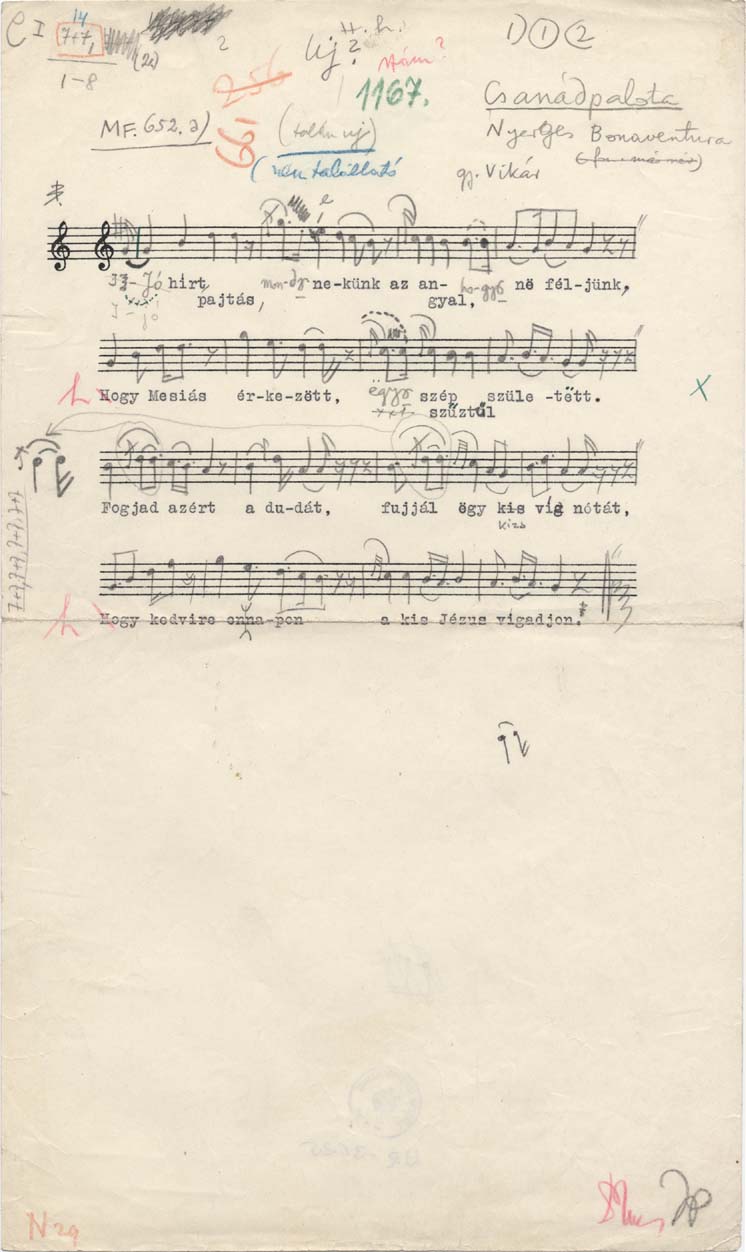 C I 14
7+7,
(2x)
1-8
2
H. h.
Uj?
1167.
1) ① ②
Csanádpalota
MF. 652. a)
661
(talán uj)
(nem található
Nyerges Bonaventura
gy. Vikár
I-Jó hirt, mon-dy ne-künk az an- ho-gyö në fél-jünk,
I-jó pajtás, gyal,
Hogy Mesiás ér-ke-zött, ëgyö szép szüle -tëtt.
szűztűl
Fogjad azért a du-dát, fujjál ögy kis víg nótát,
kizs
7+7,7+7,7+7,7+7
Hogy kedvire ennapon a kis Jézus vigadjon.
N 29